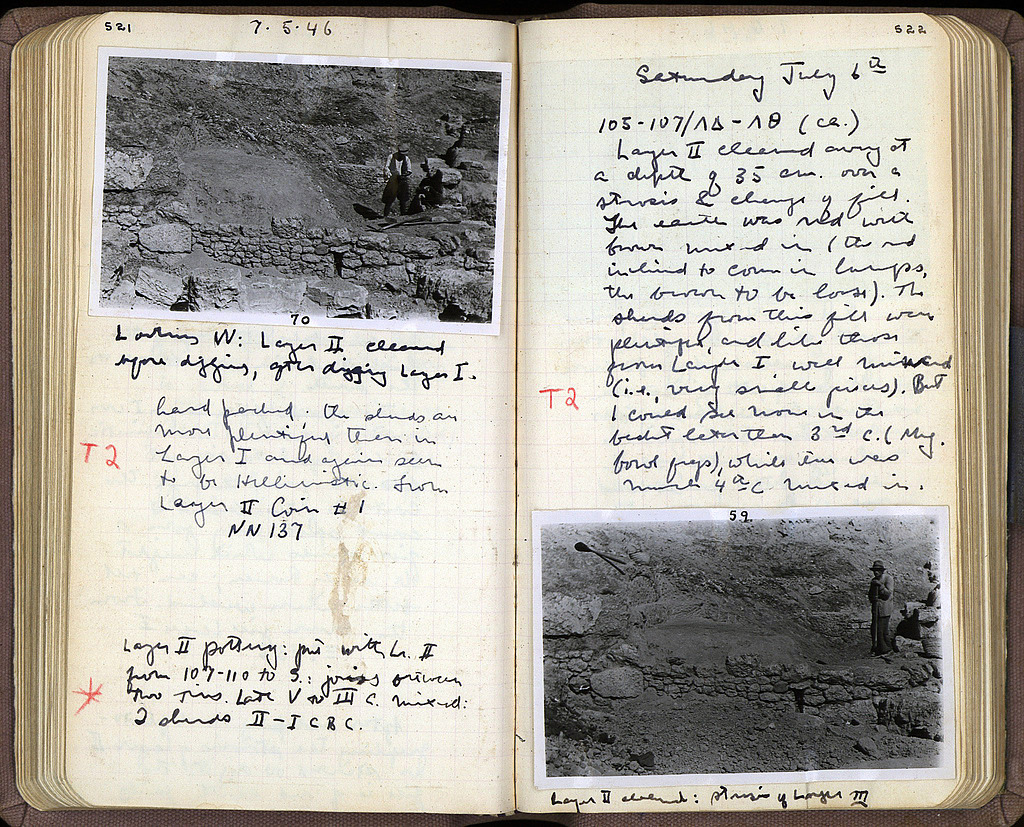 521
7·5·46
70
Looking W: Layer II cleared
before digging, after digging Layer I.
hard packed; the sherds are
more plentiful than in
Layer I and again seem
to be Hellenistic. From
T2
Layer II Coin #1
NN 137
Layer II pottery: put with Lr. II
from 107-110 to S.: joins between
two tins. Late V to III C. mixed:
2 sherds II-I C BC.
522
Saturday July 6th
105-107/ΛΔ-ΛΘ (ca.)
Layer II cleared away at
a depth of 35 cm. over a
strosis & change of fill.
The earth was red with
brown mixed in (the red
inclined to come in lumps,
the brown to be loose). The
sherds from this fill were
plentiful, and like those
from Layer I, well mixed
(i.e., very small pieces). But
T2
I could see none in the
basket later than 3rd c. (Meg.
bowl frags), while there was
much 4th c. mixed in.
59
Layer II cleared: strosis of Layer III